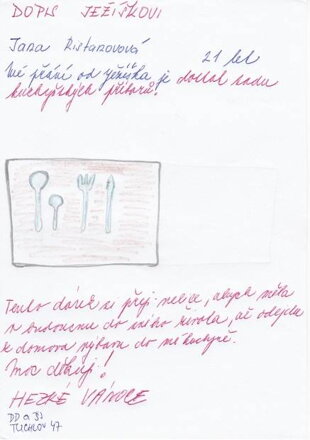 DOPIS JEŽÍŠKOVI
Jana 21 let
Mé přání od ježíška je dostat sadu
kuchyňských příborů!
Tento dárek si přeji nejvíce, abych měla
v budoucnu do života, až odejdu
z domova výbavu do mé kuchyně.
Moc děkuji!
HEZKÉ VÁNOCE
DD a ŠJ
TUCHLOV 47